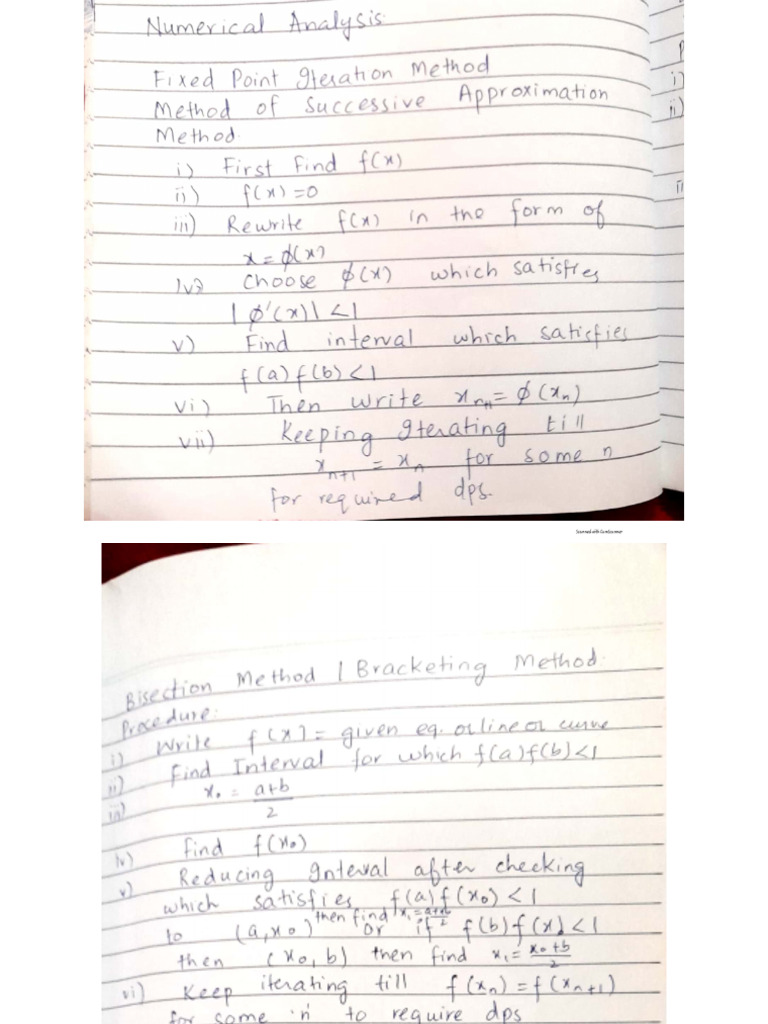 Numerical Analysis
Fixed Point Iteration Method
Method of Successive Approximation
Method.
i) First Find f(x)
ii) f(x)=0
iii) Rewrite f(x) in the form of
x = ϕ(x)
iv) Choose ϕ(x) which satisfies
|ϕ'(x)| <1
v) Find interval which satisfies
f(a) f(b) <1
vi) Then write xₙ₊₁ = ϕ(xₙ)
vii) Keeping Iterating till
xₙ₊₁ = xₙ for some n
for required dps.
i)
ii)
Scanned with CamScanner
Bisection Method | Bracketing Method.
Procedure:
i) Write f(x) = given eq. or line or curve
ii) Find Interval for which f(a)f(b)<1
iii) x₀ = a+b/2
iv) find f(x₀)
v) Reducing Interval after checking
which satisfies f(a)f(x₀) <1
to (a,x₀) then find x₁=a+x₀/2 or if f(b)f(x)<1
then (x₀, b) then find x₁= x₀+b/2
vi) Keep iterating till f(xₙ) = f(xₙ₊₁)
for some 'n' to require dps